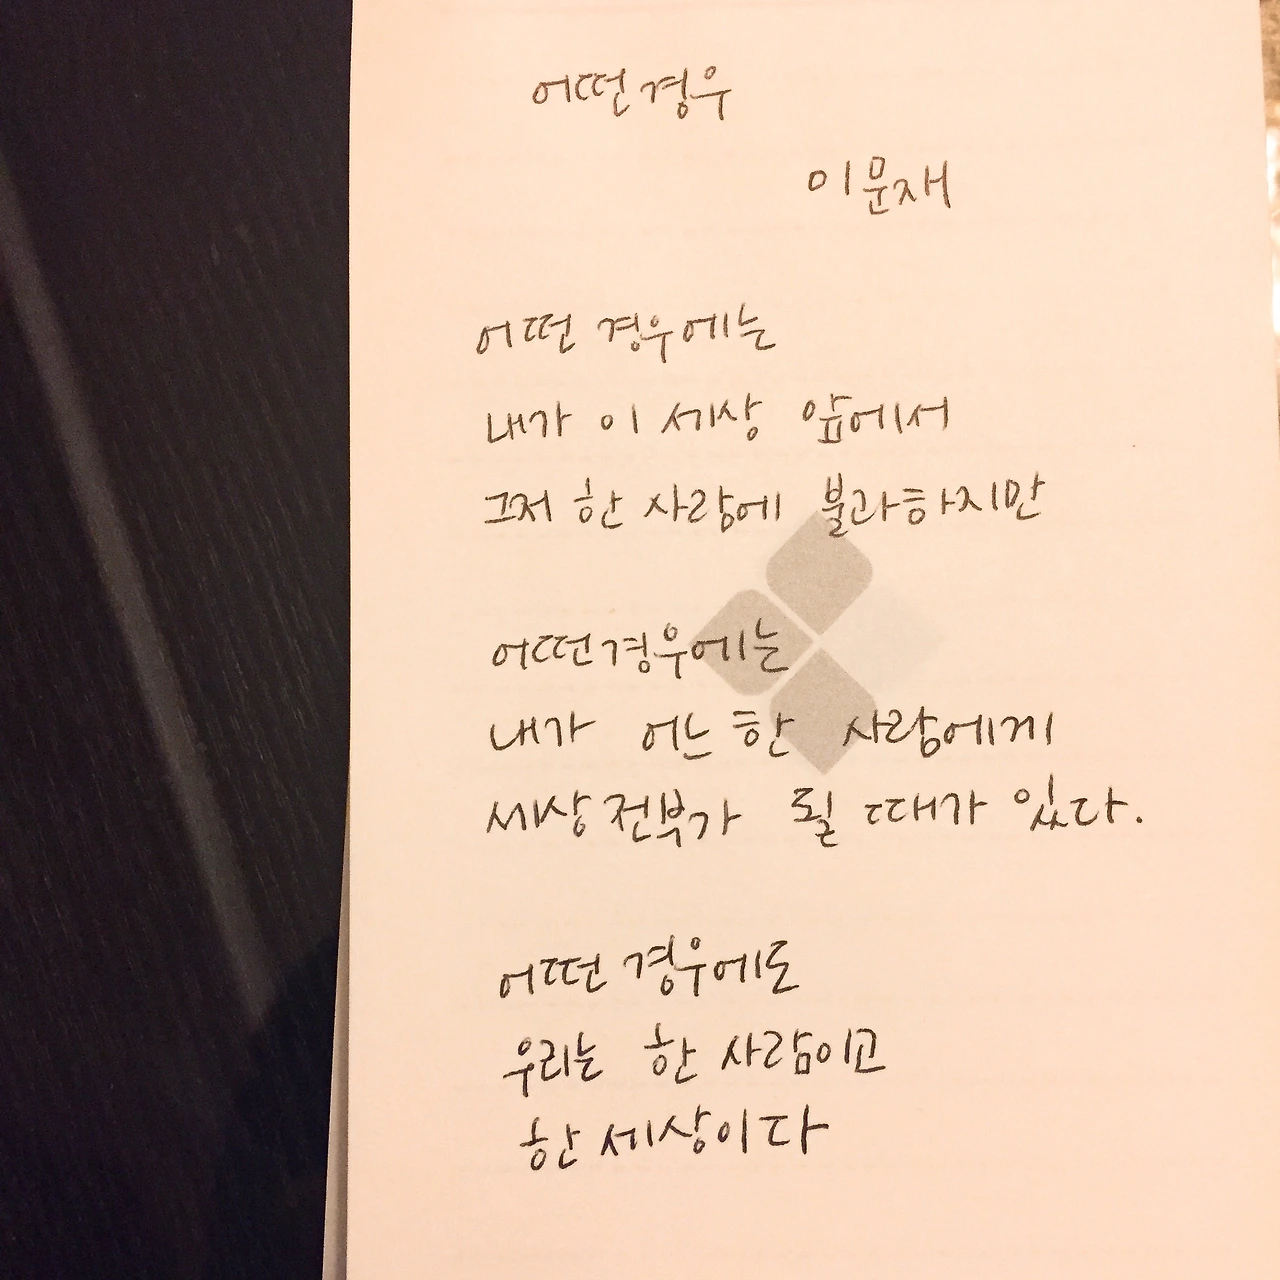 어떤 경우
이문재
어떤 경우에는
내가 이 세상 앞에서
그저 한 사람에 불과하지만
어떤 경우에는
내가 어느 한 사람에게
세상 전부가 될 때가 있다.
어떤 경우에도
우리는 한 사람이고
한 세상이다